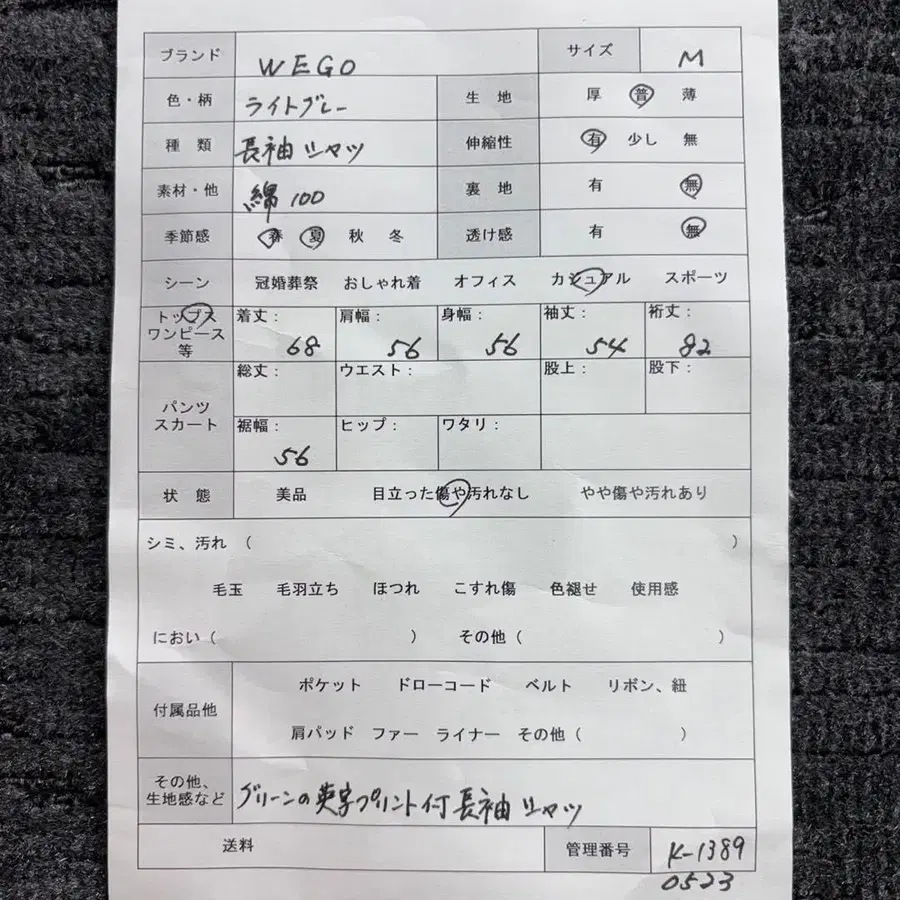 ブランド WEGO サイズ M
色・柄 ライトグレー 生 地 厚 普 薄
種 類 長袖シャツ 伸縮性 有 少し 無
素材・他 綿 100 裏 地 有 無
季節感 春 夏 秋 冬 透け感 有 無
シーン 冠婚葬祭 おしゃれ着 オフィス カジュアル スポーツ
トップス
ワンピース
等
着丈: 68 肩幅: 56 身幅: 56 袖丈: 54 裄丈: 82
パンツ
スカート
総丈: ウエスト: 股上: 股下:
裾幅: 56 ヒップ: ワタリ:
状 態 美品 目立った傷や汚れなし やや傷や汚れあり
シミ、汚れ ( )
毛玉 毛羽立ち ほつれ こすれ傷 色褪せ 使用感
におい ( ) その他 ( )
付属品他 ポケット ドローコード ベルト リボン、紐
肩パッド ファー ライナー その他 ( )
その他、
生地感など
グリーンの英字プリント付長袖シャツ
送料 管理番号 K-1389
0523